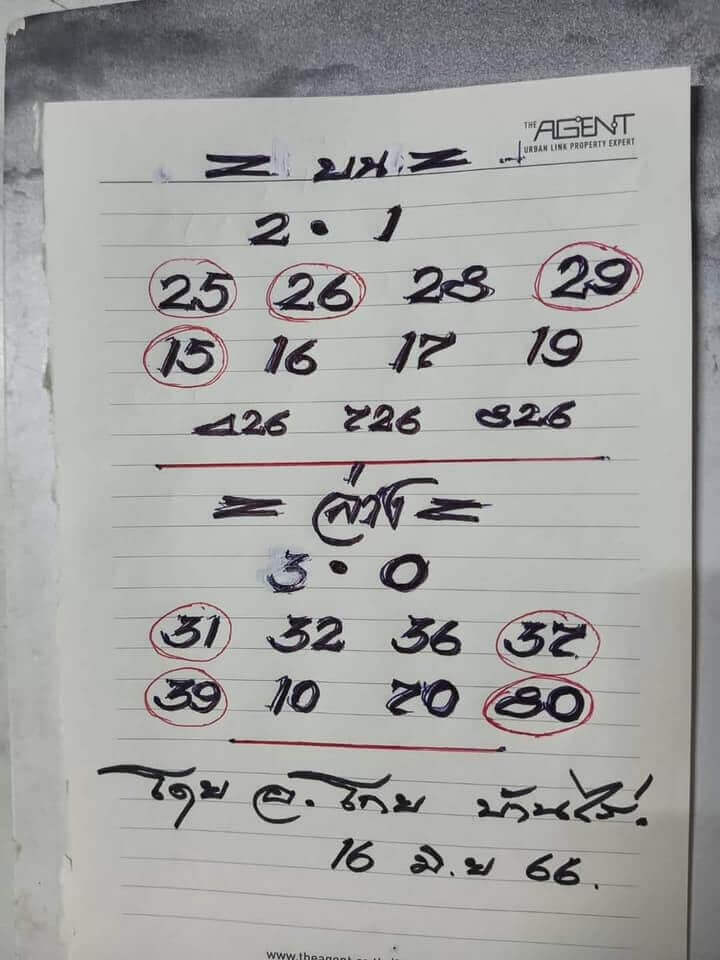 THE AGENT
URBAN LINK PROPERTY EXPERT
= บน =
2 • 1
25 26 28 29
15 16 17 19
426 726 826
= ล่าง =
3 • 0
31 32 36 37
39 10 70 80
โดย อ. โกย บ้านไร่.
16 มิ.ย 66.